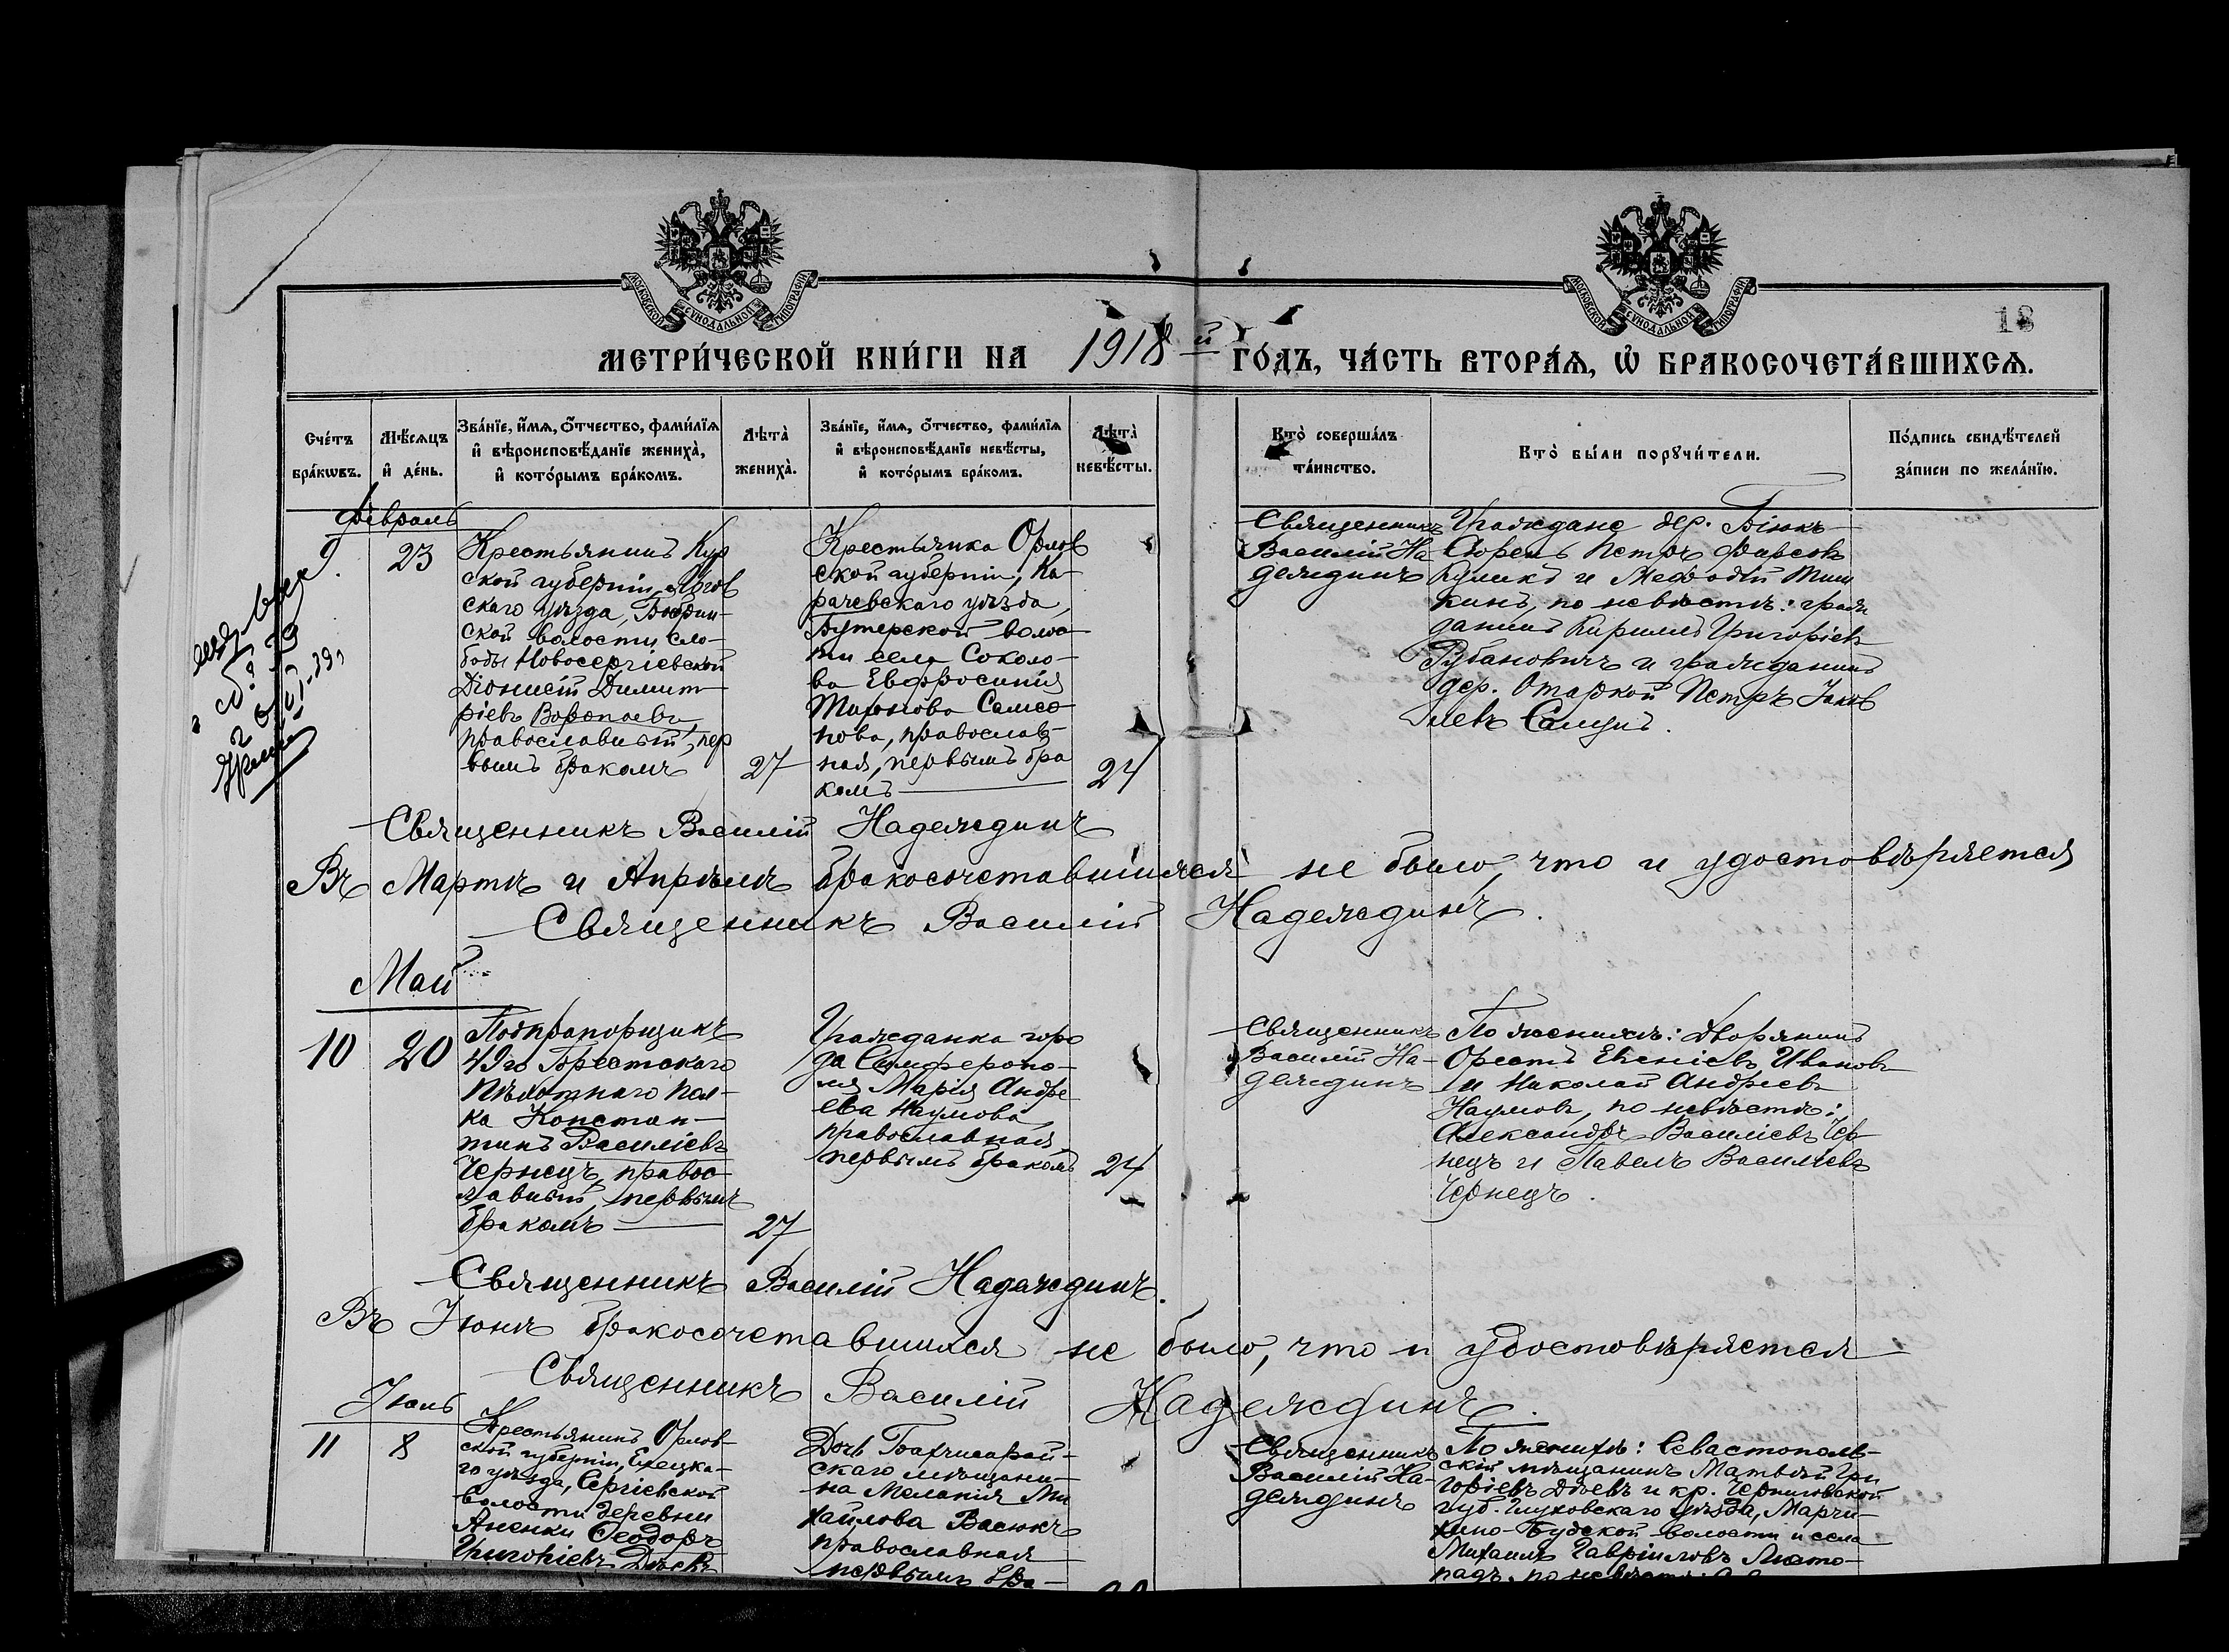 МОСКОВСКОЙ СѴНОДАЛЬНОЙ ТИПОГРАФІИ
МОСКОВСКОЙ СѴНОДАЛЬНОЙ ТИПОГРАФІИ
18
МЕТРИ́ЧЕСКОЙ КНИ́ГИ НА 1918 й ГО́ДЪ, ЧА́СТЬ ВТОРА́Ѧ, Ѽ БРАКОСОЧЕТА́ВШИХСѦ.
Сче́тъ
бра́кѡвъ.
Мѣ́сѧцъ
и҆ де́нь.
Зва́нїе, и҆́мѧ, ѻ҆́тчество, фами́лїѧ
и҆ вѣроисповѣ́данїе жениха̀,
и҆ кото́рымъ бра́комъ.
Лѣта̀
жениха̀.
Зва́нїе, и҆́мѧ, ѻ҆́тчество, фами́лїѧ
и҆ вѣроисповѣ́данїе невѣ́сты,
и҆ кото́рымъ бра́комъ.
Лѣта̀
невѣ́сты.
Кто̀ соверша́лъ
та́инство.
Кто̀ бы́ли порꙋчи́тели.
По́дпись свидѣ́телей
за́писи по жела́нїю.
Февраль
9.
23
Крестьянинъ Кур
ской губерніи, Льгов
скаго уѣзда,
ской волости, сло-
боды Новосергіевской
Діонисій Димит-
ріевъ Воропаевъ,
православный, пер
вымъ бракомъ
27
Крестьянка Орлов
ской губерніи, Ка-
рачевскаго уѣзда,
Бутерской волос
ти села Соколо-
ва Евфросинія
Самсо
нова, православ-
ная, первымъ бра
комъ
24
Священникъ
Василій На
деждинъ
Граждане дер. Біюкъ-
Сюрень Петръ
и Мефодій
по невѣстѣ: граж
данинъ Кириллъ Григоріевъ
Рубановичъ и гражданинъ
дер. Отаркой Петръ Іаков
левъ
Священникъ Василій Надеждинъ
Въ Мартѣ и Апрѣлѣ бракосочетавшихся не было, что и удостовѣряется
Священникъ Василій Надеждинъ.
Май
10
20
Подпрапорщикъ
49го Брестскаго
пѣхотнаго пол-
ка Констан-
тинъ Василіевъ
Чернецъ, правос-
лавный, первымъ
бракомъ
27
Гражданка горо
да Симферопо-
ля Марія Андре
ева Наумова,
православная
первымъ бракомъ
24
Священникъ
Василій На-
деждинъ
По женихѣ: Дворянинъ
Орестъ Евгеніевъ Ивановъ
и Николай Андреевъ
Наумовъ, по невѣстѣ:
Александръ Василіевъ Чер-
нецъ и Павелъ Василіевъ
Чернецъ.
Священникъ Василій Надеждинъ.
Въ Іюнѣ бракосочетавшихся не было, что и удостовѣряется
Священникъ Василій Надеждинъ.
Іюль
11
8
Крестьянинъ Орлов-
ской губерніи, Елецка-
го уѣзда, Сергіевской
волости деревни
Аненки Ѳеодоръ
Григоріевъ
Дочь Бахчисарай-
скаго мѣщани-
на Меланія Ми
хайлова Васюкъ
православная
первымъ бра-
Священникъ
Василій На-
деждинъ
По женихѣ: Севастополь-
скій мѣщанинъ Матвѣй Гри
горіевъ и кр. Черниговской
губ. Глуховскаго уѣзда, Марчи-
хино-Будской волости и села
Михаилъ Гавріиловъ